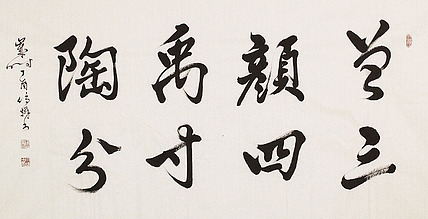 曾三
顏四
禹寸
陶分